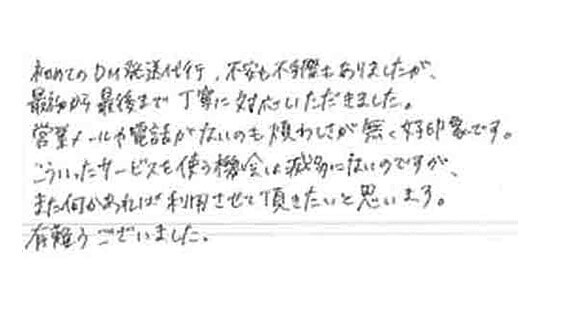 初めてのDM発送代行、不安も不手際もありましたが、
最初から最後まで丁寧に対応いただきました。
営業メールや電話がないのも煩わしさが無く好印象です。
こういったサービスを使う機会は滅多にないのですが、
また何かあれば利用させて頂きたいと思います。
有難うございました。